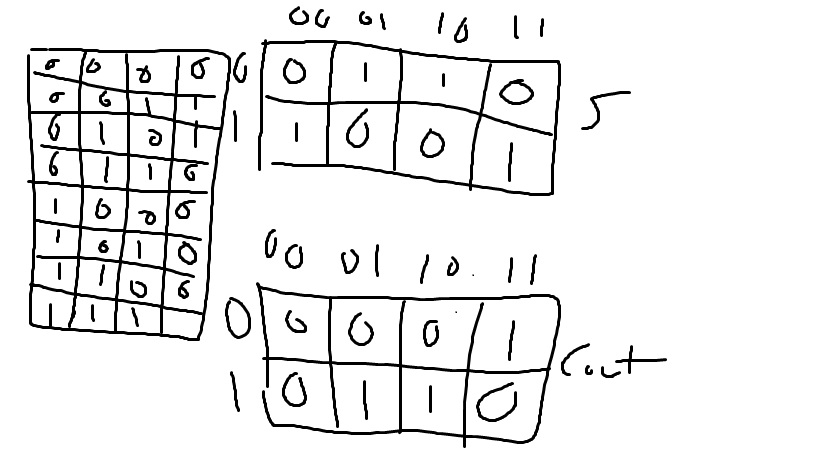 0 0 0 0
0 0 1 1
0 1 0 1
0 1 1 0
1 0 0 0
1 0 1 0
1 1 0 0
1 1 1
00 01 10 11
0 0 1 1 0
1 1 0 0 1
S
00 01 10 11
0 0 0 0 1
1 0 1 1 0
Cout